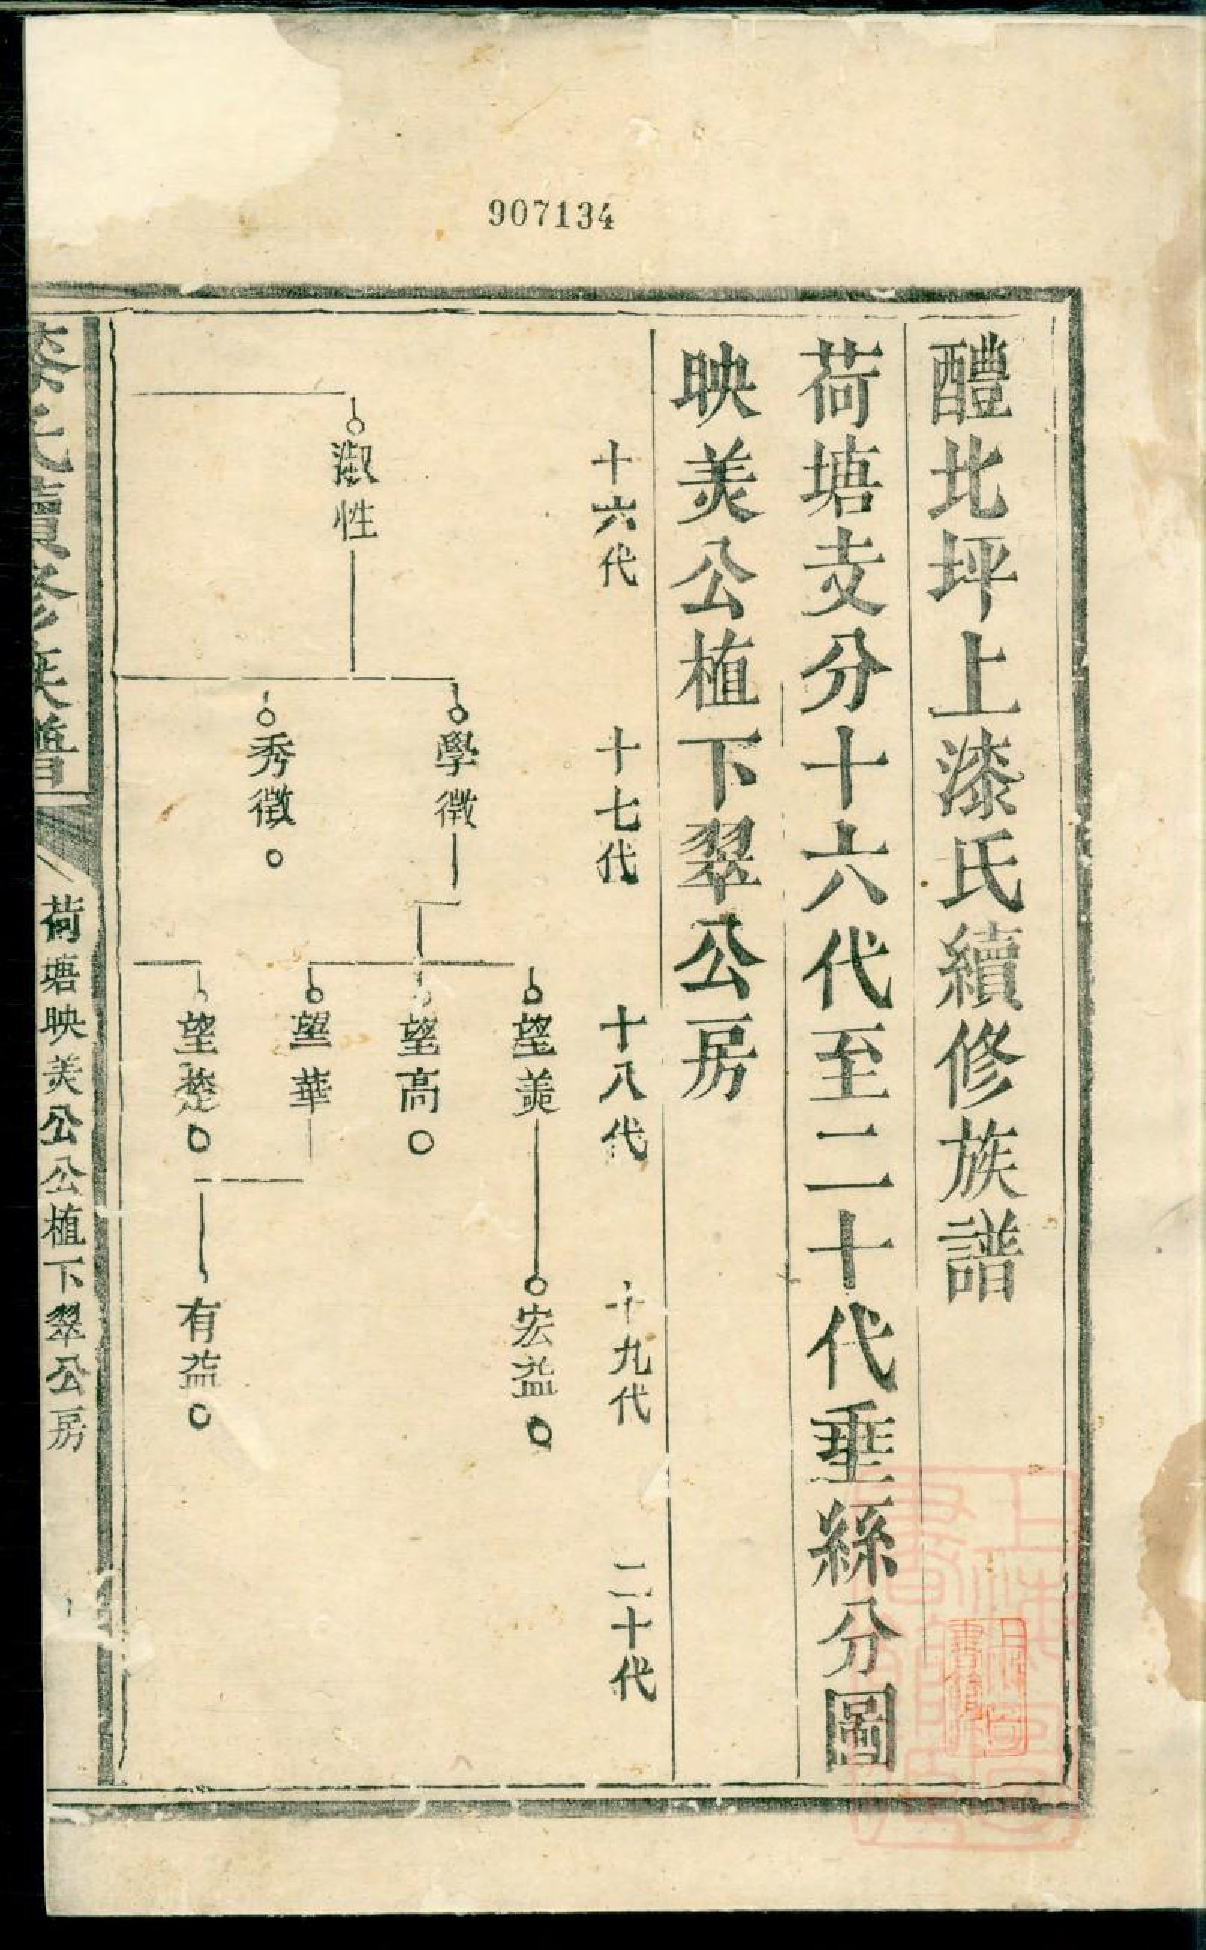 907134
醴北坪上漆氏續修族譜
荷塘支分十六代至二十代垂絲分圖
映美公植下翠公房
十六代
十七代
十八代
十九代
二十代
淑性
學徵
秀徵
望美
望高
望華
望楚
宏益
有益
漆氏續修族譜
荷塘映美公公植下翠公房
上海圖書館藏